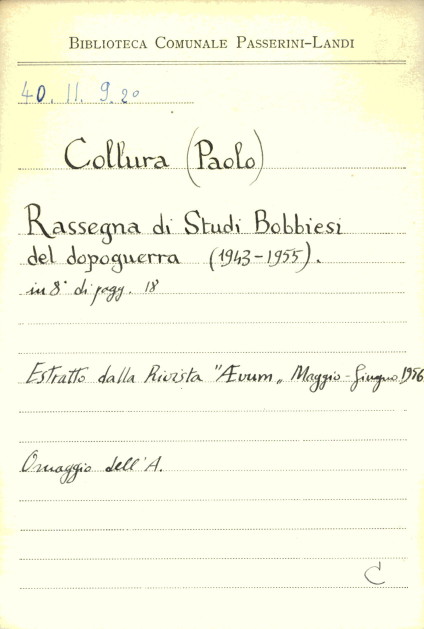 BIBLIOTECA COMUNALE PASSERINI-LANDI
40. 11. 9. 20
Collura (Paolo)
Rassegna di Studi Bobbiesi
del dopoguerra (1943-1955).
in 8° di pagg. 18
Estratto dalla Rivista "Ævum" Maggio-Giugno 1956
Omaggio dell'A.
C